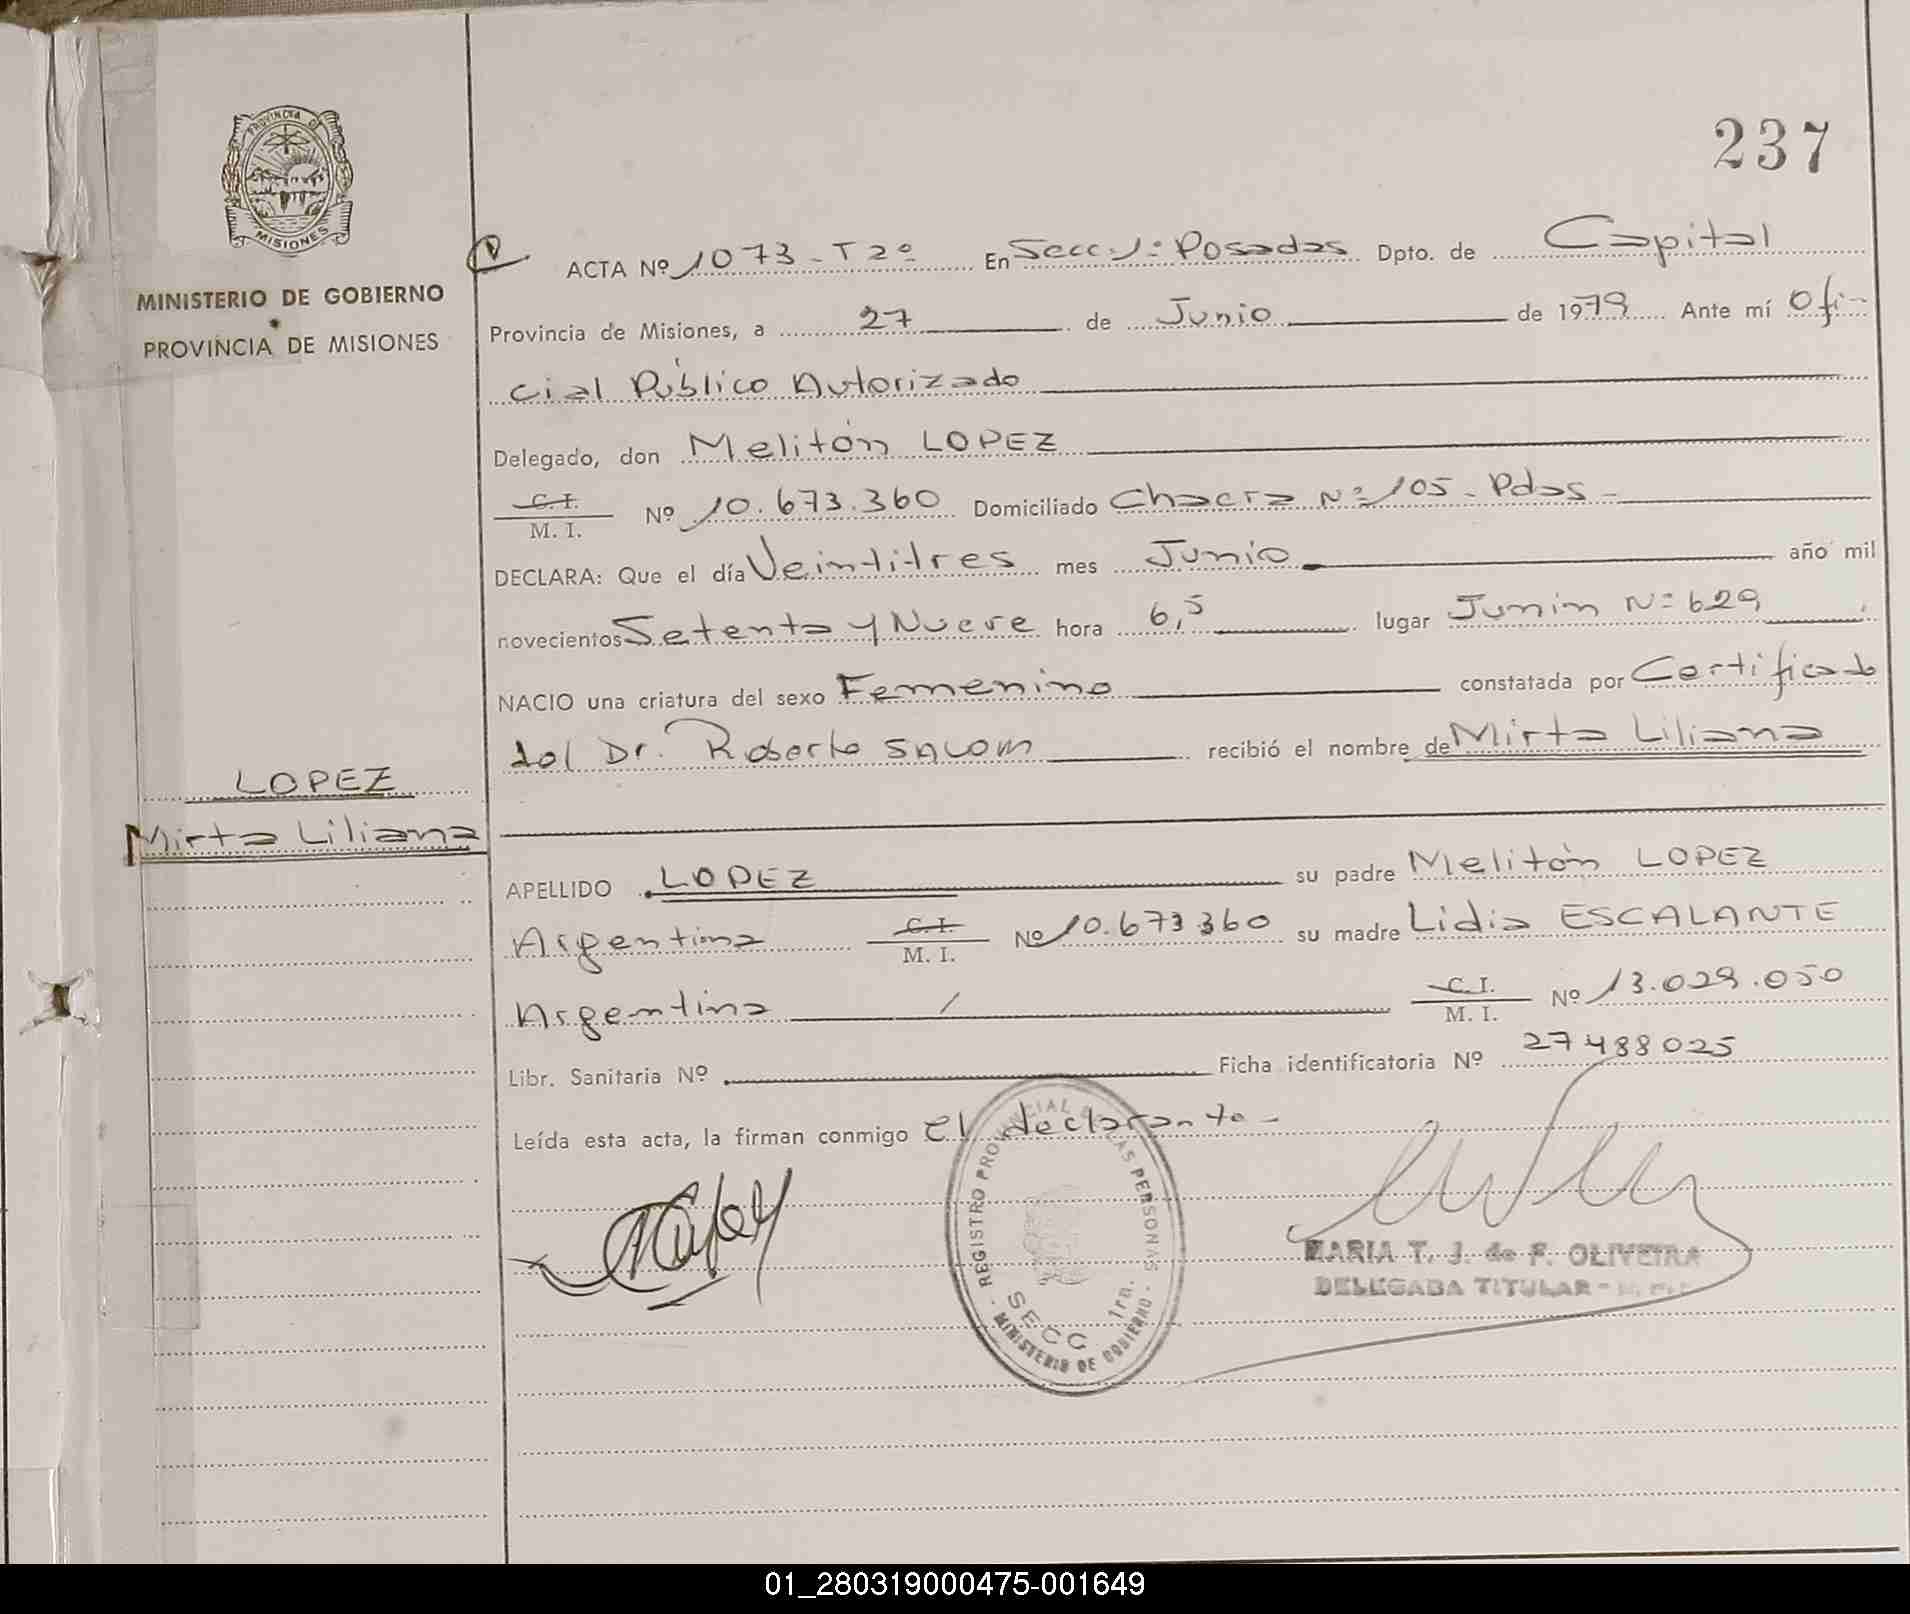 237
PROVINCIA DE
MISIONES
MINISTERIO DE GOBIERNO
PROVINCIA DE MISIONES
ACTA Nº 1073 - T 2º En Secc. 1ª Posadas Dpto. de Capital
Provincia de Misiones, a 27 de Junio de 1979 Ante mí Ofi-
cial Público Autorizado
Delegado, don Melitón LOPEZ
C. I.
M. I. Nº 10.673.360 Domiciliado Chacra Nº 105 - Pdas -
DECLARA: Que el día Veintitres mes Junio año mil
novecientos Setenta y Nueve hora 6,5 lugar Junin Nº 629
NACIO una criatura del sexo Femenino constatada por Certificado
del Dr. Roberto SALOM recibió el nombre de Mirta Liliana
LOPEZ
Mirta Liliana
APELLIDO LOPEZ su padre Melitón LOPEZ
Argentina C. I. M. I. Nº 10.673.360 su madre Lidia ESCALANTE
Argentina C. I. M. I. Nº 13.029.050
Libr. Sanitaria Nº Ficha identificatoria Nº 27488025
Leída esta acta, la firman conmigo el declarante -
REGISTRO PROVINCIAL DE LAS PERSONAS
SECC 1ra.
MINISTERIO DE GOBIERNO
MARIA T. J. de F. OLIVEIRA
DELEGADA TITULAR -
01_280319000475-001649